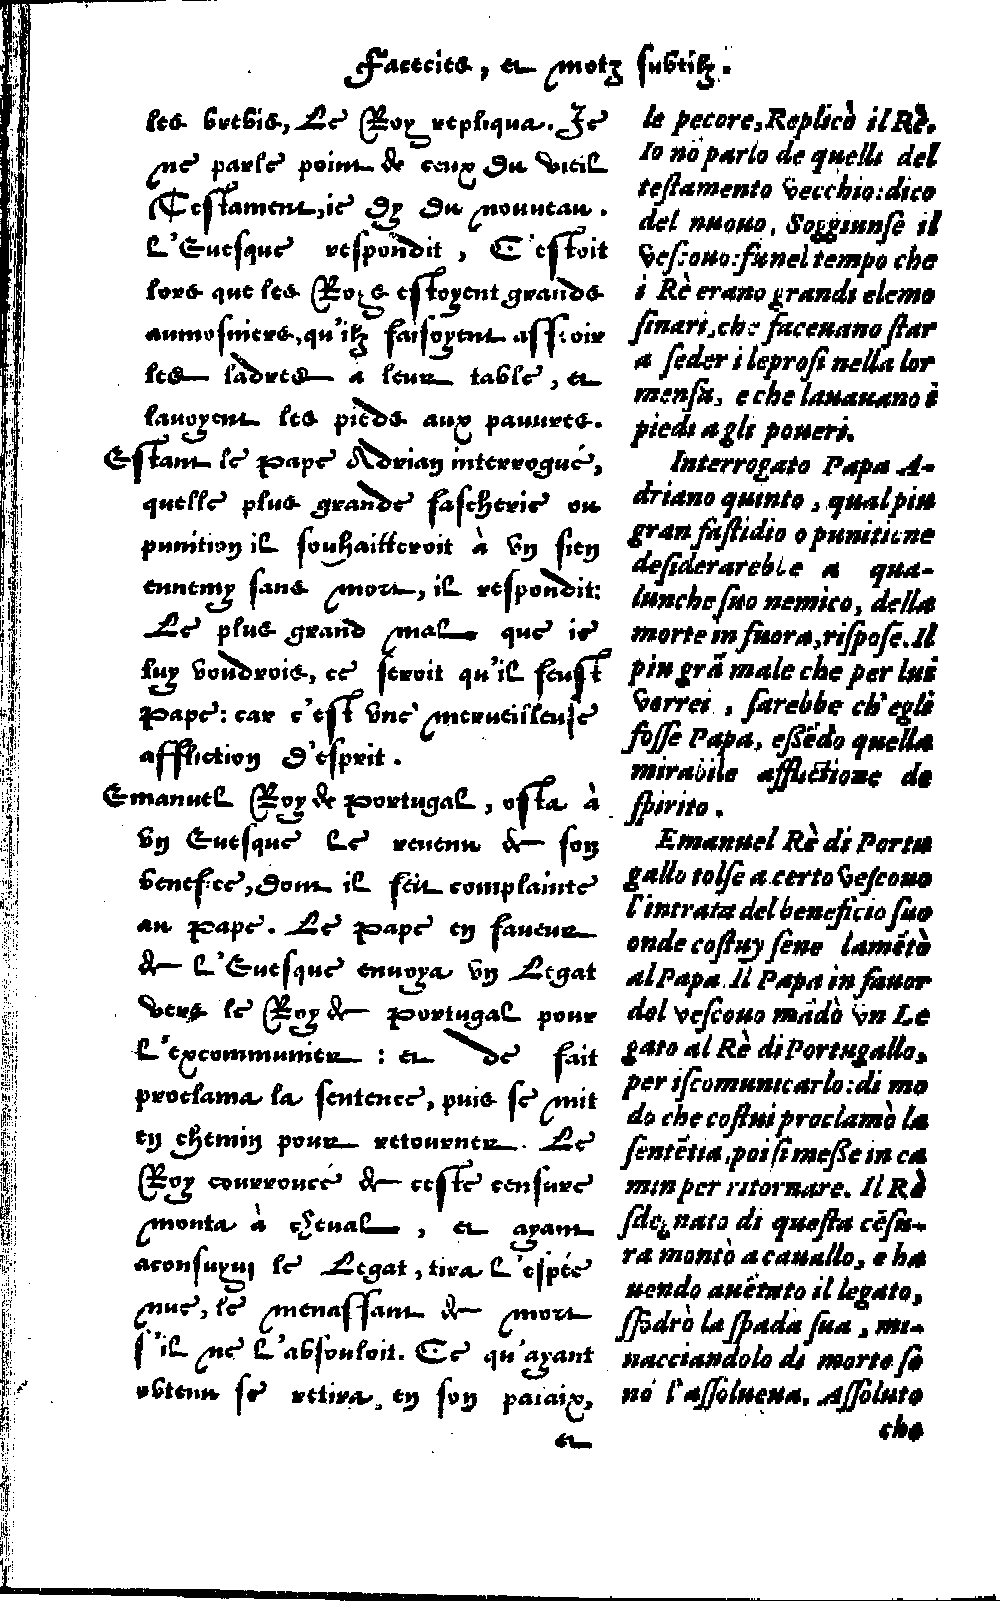 Facecies, et motz subtilz.
les brebis, Le Roy repliqua. Je
ne parle point de ceux du vieil
Testament, ie dy du nouveau.
L'Euesque respondit, C'estoit
lors que les Roys estoyent grands
aumosniers, qu'ilz faisoyent asseoir
les ladres a leur table, et
lauoyent les pieds aux pauures.
Estant le Pape Adrian interrogué,
quelle plus grande fascherie ou
punition il souhaitteroit à vn sien
ennemy sans mort, il respondit:
Le plus grand mal que ie
luy voudrois, ce seroit qu'il feust
Pape: car c'est vne merueilleuse
affliction d'esprit.
Emanuel Roy de Portugal, osta à
vn Euesque le reuenu de son
benefice, dont il feit complainte
au Pape. Le Pape en faueur
de l'Euesque enuoya vn Legat
vers le Roy de Portugal pour
l'excommunier : et de fait
proclama la sentence, puis se mit
en chemin pour retourner. Le
Roy courroucé de ceste censure
monta à cheval, et ayant
aconsuyui le Legat, tira l'espée
nue, le menassant de mort
s'il ne l'absouloit. Ce qu'ayant
obtenu se retira, en son palaix,
et
le pecore, Replicò il Rè.
Io nō parlo de quelli del
testamento vecchio: dico
del nuouo, Soggiunse il
vescouo: fu nel tempo che
i Rè erano grandi elemo
sinari, che faceuano star
a seder i leprosi nella lor
mensa, e che lauauano è
piedi agli poueri.
Interrogato Papa A-
driano quinto, qual piu
gran fastidio o punitione
desiderarebbe a qua-
lunche suo nemico, della
morte in fuora, rispose. Il
piu grā male che per lui
vorrei, sarebbe ch'egli
fosse Papa, essēdo quella
mirabile afflictione de
spirito.
Emanuel Rè di Portu
gallo tolse a certo vescouo
l'intrata del beneficio suo
onde costuy sene lamētò
al Papa. Il Papa in fauor
del vescouo mādò vn Le
gato al Rè di Portugallo,
per iscomunicarlo: di mo
do che costui proclamò la
sentētia, poi si messe in ca
min per ritornare. Il Rè
sdegnato di questa cēsu-
ra montò a cauallo, e ha
uendo auētato il legato,
sfodrò la spada sua, mi-
nacciandolo di morte se
nō l'assolueua. Assoluto
che